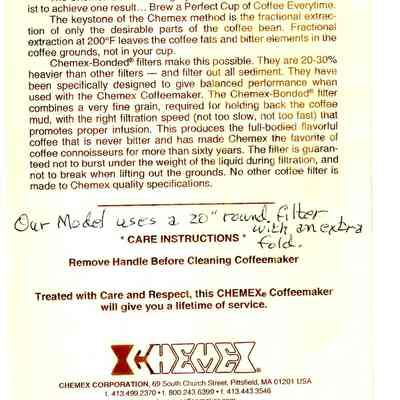 ist to achieve one result... Brew a Perfect Cup of Coffee Everytime.
The keystone of the Chemex method is the fractional extrac-
tion of only the desirable parts of the coffee bean. Fractional
extraction at 200°F leaves the coffee fats and bitter elements in the
coffee grounds, not in your cup.
Chemex-Bonded® filters make this possible. They are 20-30%
heavier than other filters — and filter out all sediment. They have
been specifically designed to give balanced performance when
used with the Chemex Coffeemaker. The Chemex-Bonded® filter
combines a very fine grain, required for holding back the coffee
mud, with the right filtration speed (not too slow, not too fast) that
promotes proper infusion. This produces the full-bodied flavorful
coffee that is never bitter and has made Chemex the favorite of
coffee connoisseurs for more than sixty years. The filter is guaran-
teed not to burst under the weight of the liquid during filtration, and
not to break when lifting out the grounds. No other coffee filter is
made to Chemex quality specifications.
Our Model uses a 20" round filter
with an extra
fold.
* CARE INSTRUCTIONS *
Remove Handle Before Cleaning Coffeemaker
Treated with Care and Respect, this CHEMEX® Coffeemaker
will give you a lifetime of service.
CHEMEX
CHEMEX CORPORATION, 69 South Church Street, Pittsfield, MA 01201 USA
t. 413.499.2370 • t. 800.243.6399 • f. 413.443.3546